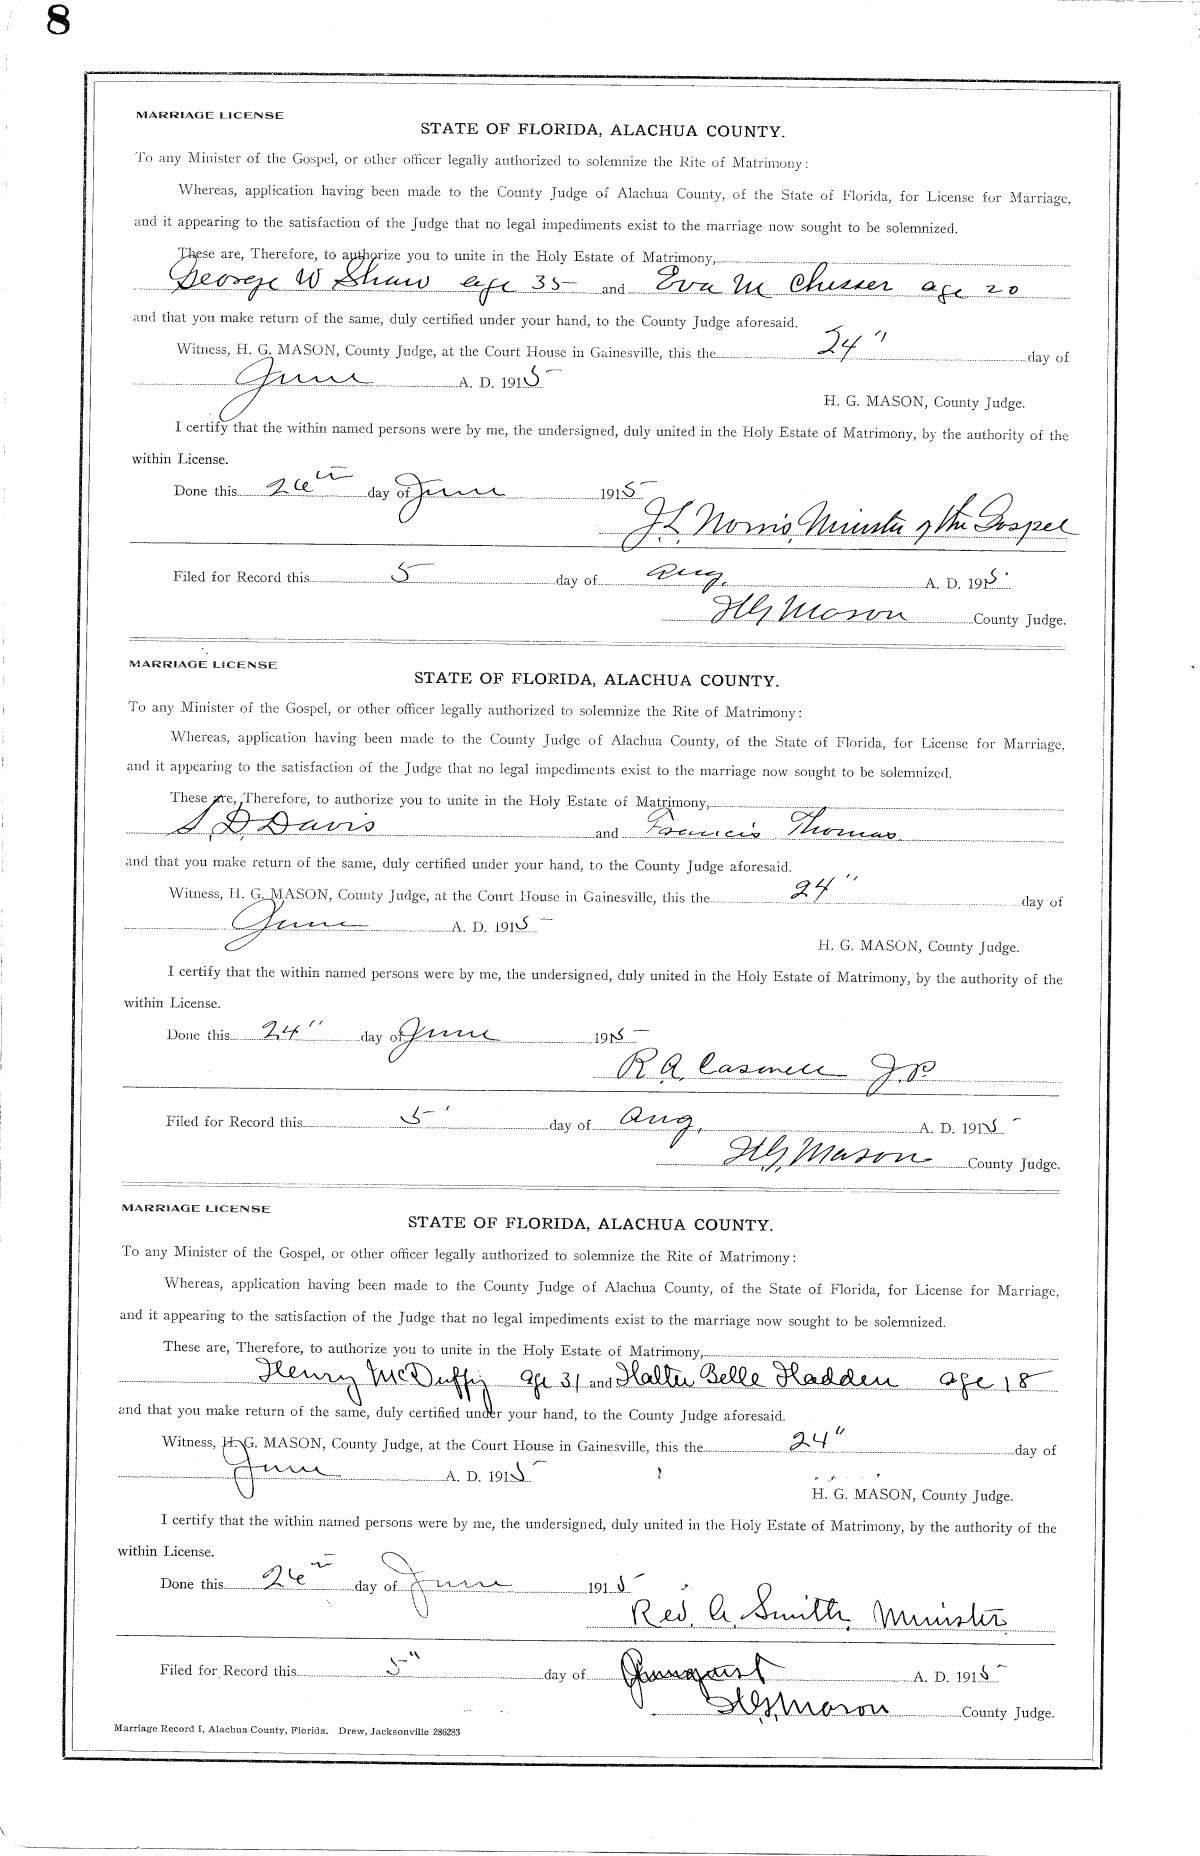 8
MARRIAGE LICENSE
STATE OF FLORIDA, ALACHUA COUNTY.
To any Minister of the Gospel, or other officer legally authorized to solemnize the Rite of Matrimony:
Whereas, application having been made to the County Judge of Alachua County, of the State of Florida, for License for Marriage,
and it appearing to the satisfaction of the Judge that no legal impediments exist to the marriage now sought to be solemnized.
These are, Therefore, to authorize you to unite in the Holy Estate of Matrimony,
George W Shaw age 35 and Eva M Chesser age 20
and that you make return of the same, duly certified under your hand, to the County Judge aforesaid.
Witness, H. G. MASON, County Judge, at the Court House in Gainesville, this the 24" day of
June A. D. 1915
H. G. MASON, County Judge.
I certify that the within named persons were by me, the undersigned, duly united in the Holy Estate of Matrimony, by the authority of the
within License.
Done this day of June 1915
J. L. Norris, Minister of the Gospel
Filed for Record this 5 day of Aug. A. D. 1915
H G Mason County Judge.
MARRIAGE LICENSE
STATE OF FLORIDA, ALACHUA COUNTY.
To any Minister of the Gospel, or other officer legally authorized to solemnize the Rite of Matrimony:
Whereas, application having been made to the County Judge of Alachua County, of the State of Florida, for License for Marriage,
and it appearing to the satisfaction of the Judge that no legal impediments exist to the marriage now sought to be solemnized.
These are, Therefore, to authorize you to unite in the Holy Estate of Matrimony,
S. D. Davis and Francis Thomas
and that you make return of the same, duly certified under your hand, to the County Judge aforesaid.
Witness, H. G. MASON, County Judge, at the Court House in Gainesville, this the 24" day of
June A. D. 1915
H. G. MASON, County Judge.
I certify that the within named persons were by me, the undersigned, duly united in the Holy Estate of Matrimony, by the authority of the
within License.
Done this 24" day of June 1915
R. A. J. P.
Filed for Record this 5 day of Aug. A. D. 1915
H. G. Mason County Judge.
MARRIAGE LICENSE
STATE OF FLORIDA, ALACHUA COUNTY.
To any Minister of the Gospel, or other officer legally authorized to solemnize the Rite of Matrimony:
Whereas, application having been made to the County Judge of Alachua County, of the State of Florida, for License for Marriage,
and it appearing to the satisfaction of the Judge that no legal impediments exist to the marriage now sought to be solemnized.
These are, Therefore, to authorize you to unite in the Holy Estate of Matrimony,
Henry McDuffy age 31 and Halter Belle Hadden age 18
and that you make return of the same, duly certified under your hand, to the County Judge aforesaid.
Witness, H. G. MASON, County Judge, at the Court House in Gainesville, this the 24" day of
June A. D. 1915
H. G. MASON, County Judge.
I certify that the within named persons were by me, the undersigned, duly united in the Holy Estate of Matrimony, by the authority of the
within License.
Done this day of June 1915
Rev. A. Smith, Minister
Filed for Record this 5" day of A. D. 1915
H. G. Mason County Judge.
Marriage Record I, Alachua County, Florida. Drew, Jacksonville 286283